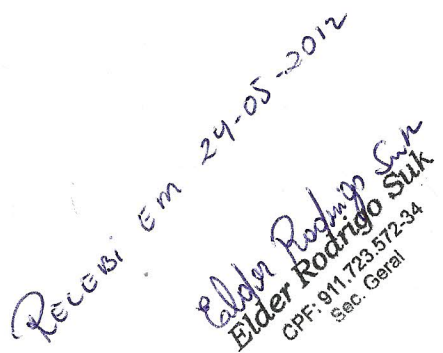 RECEBI EM 24-05-2012
Elder Rodrigo Suk
Elder Rodrigo Suk
CPF: 911.723.572-34
Sec. Geral